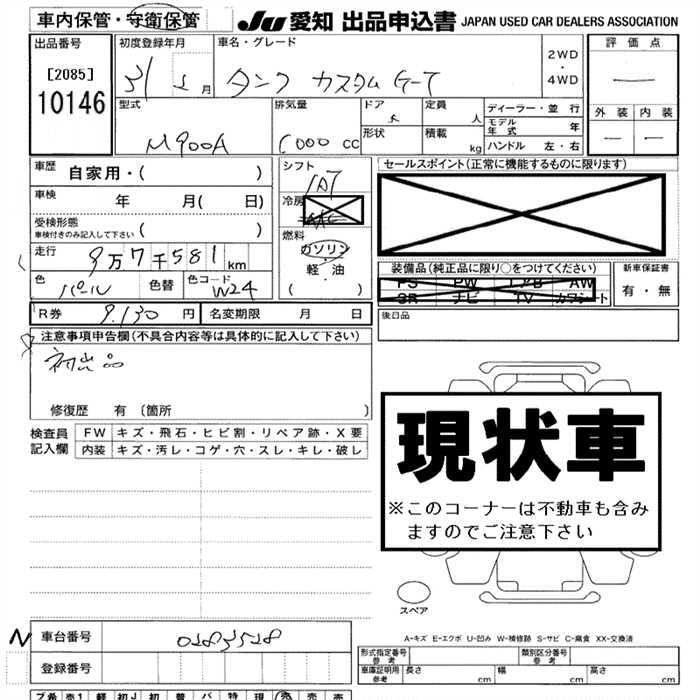 車内保管・守衛保管 JU 愛知 出品申込書 JAPAN USED CAR DEALERS ASSOCIATION
出品番号 初度登録年月 車名・グレード 評価点
[2085] 10146 31 月 タンク カスタム G-T 2WD・4WD
型式 排気量 ドア 5 定員 人 ディーラー・並行 外装 内装
M900A 1000 cc 形状 積載 kg モデル年式 年
ハンドル 左・右
車歴 自家用・( ) シフト セールスポイント(正常に機能するものに限ります)
車検 年 月( 日) IAT
冷房
受検形態 車検付きのみ記入して下さい ( ) 燃料
走行 9万7千581km ガソリン・軽油 ( ) 装備品(純正品に限り○をつけてください) 新車保証書
色 パール 色替 色コード W24 有・無
R券 9,130円 名変期限 月 日 後日品
注意事項申告欄(不具合内容等は具体的に記入して下さい)
初出品
修復歴 有 〔箇所 〕
現状車
※このコーナーは不動車も含みますのでご注意下さい
検査員記入欄 FW キズ・飛石・ヒビ割・リペア跡・X要
内装 キズ・汚レ・コゲ・穴・スレ・キレ・破レ
スペア
A-キズ E-エクボ U-凹み W-補修跡 S-サビ C-腐食 XX-交換済
N 車台番号 0283528
登録番号
形式指定番号 参考 類別区分番号 参考
車庫証明用 参考 長さ cm 幅 cm 高さ cm